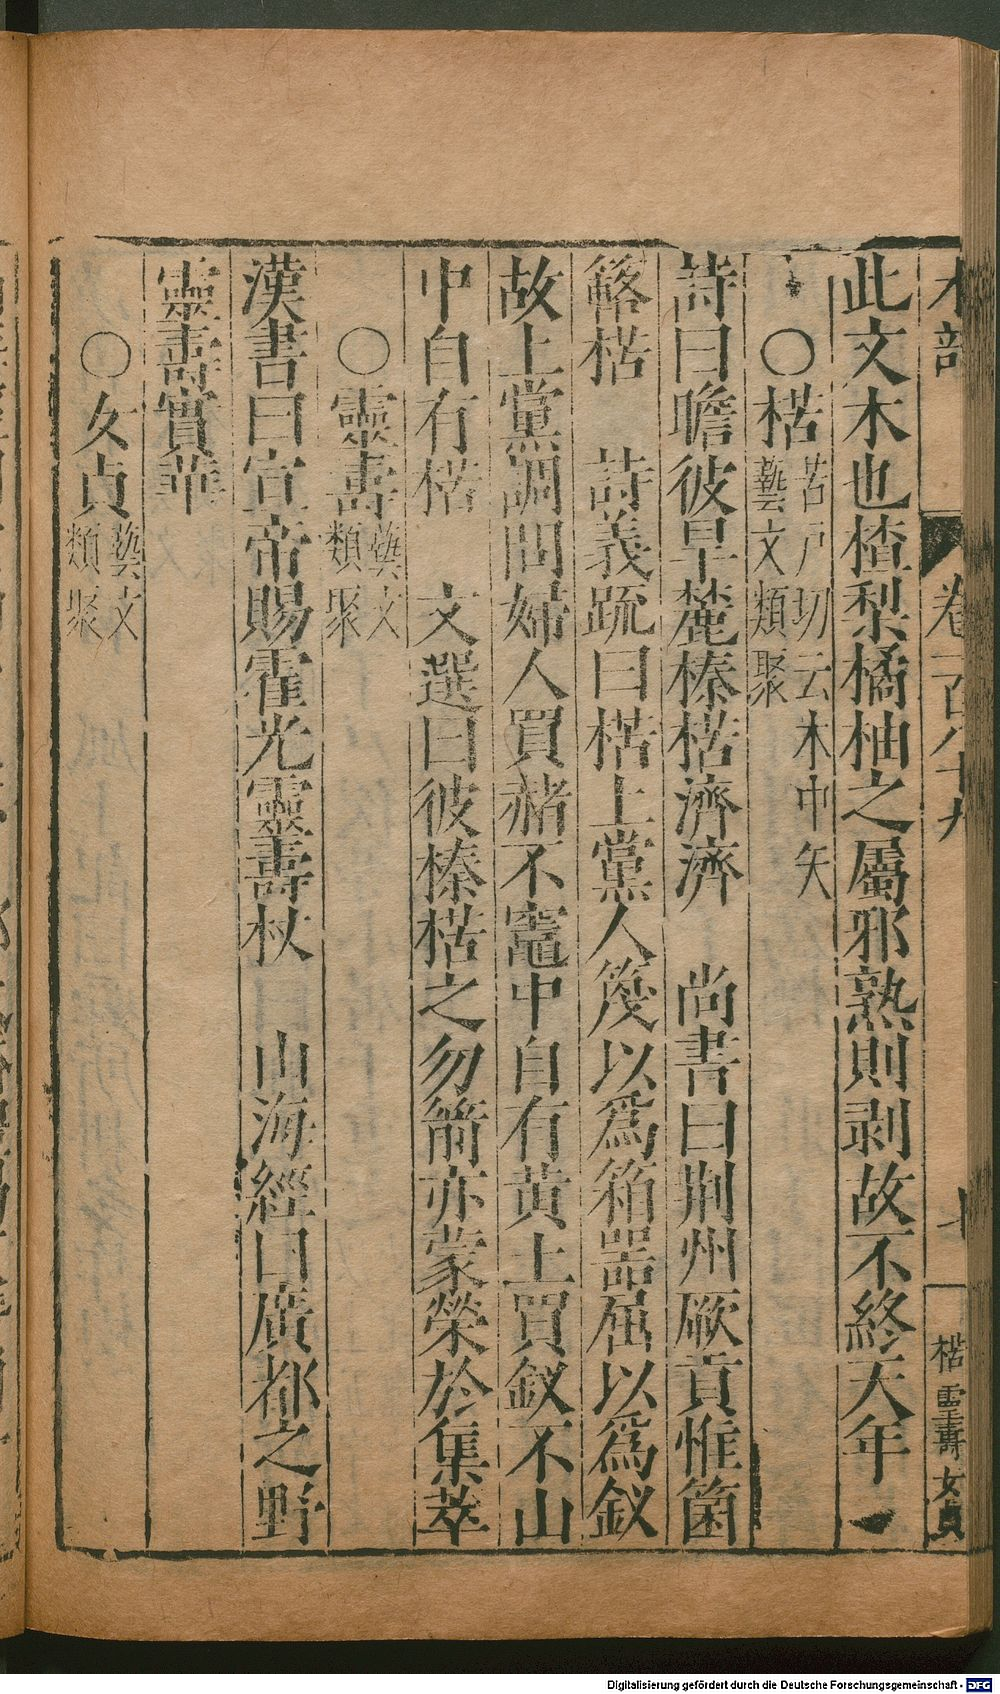 木部 卷一百八十九 七 楛 靈壽 女貞
此文木也楂梨橘柚之屬邪熟則剥故不終天年
〇楛苦戸切云木中矢藝文類聚
詩曰瞻彼旱麓榛楛濟濟 尚書曰荆州厥貢惟箘
簵楛 詩義疏曰楛上黨人篾以爲箱器屈以爲釵
故上黨調問婦人買赭不竈中自有黄土買釵不山
中自有楛 文選曰彼榛楛之勿翦亦蒙榮於集萃
〇靈壽藝文類聚
漢書曰宣帝賜霍光靈壽杖 山海經曰廣都之野
靈壽實華
〇女貞藝文類聚
Digitalisierung gefördert durch die Deutsche Forschungsgemeinschaft - DFG